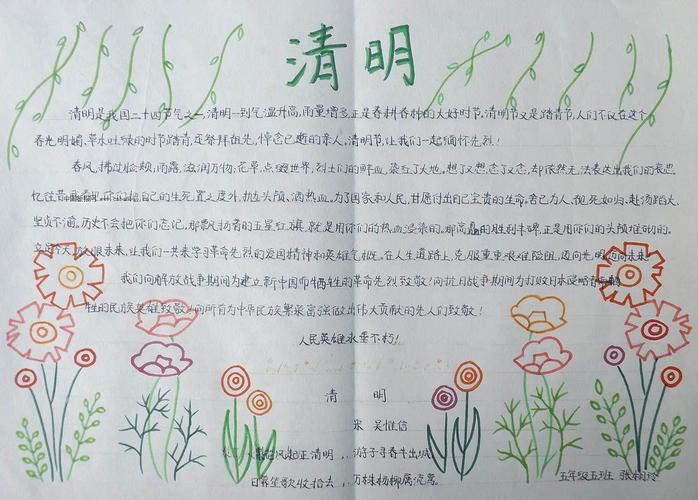 清明
清明是我国二十四节气之一,清明一到气温升高,雨量增多,正是春耕春种的大好时节,清明节又是踏青节,人们不仅在这个
春光明媚、草木吐绿的时节踏青,还祭拜祖先,悼念已逝的亲人,清明节,让我们一起缅怀先烈!
春风,拂过脸颊,雨露,滋润万物;花草,点缀世界,烈士们的鲜血,染红了大地。想了又想,念了又念,却依然无法表达出我们的哀思
忆往昔,你们把自己的生死置之度外,抛头颅,洒热血,为了国家和人民,甘愿付出自己宝贵的生命,舍己为人,视死如归,赴汤蹈火,
坚贞不渝。历史不会把你们忘记,那飘扬着的五星红旗,就是用你们的热血浸染的。那高矗的胜利丰碑,正是用你们的头颅堆砌的。
立足今天,放眼未来,让我们一起来学习革命先烈的爱国精神和英雄气概。在人生道路上,克服重重艰难险阻,迈向光明迈向未来
我们向解放战争期间为建立新中国而牺牲的革命先烈致敬!向抗日战争期间为打败日本侵略者而
牲的民族英雄致敬!向所有为中华民族繁荣富强做出伟大贡献的先人们致敬!
人民英雄永垂不朽!
清 明
宋 吴惟信
风起正清明,游子寻春半出城。
日暮笙歌收拾去,万株杨柳属流莺。
五年级五班 张